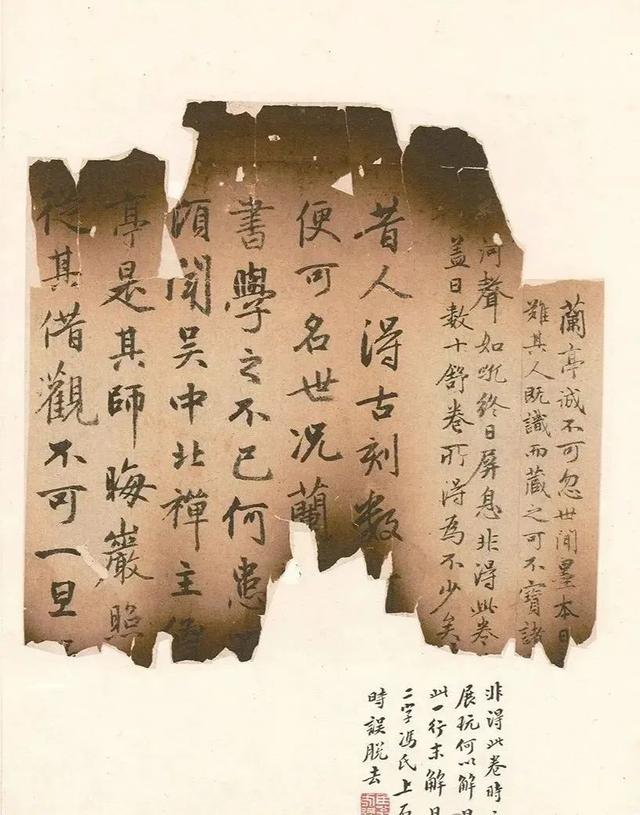 蘭亭誠不可忽世間墨本日
難其人既識而藏之可不寶諸
河聲如吼終日屏息非得此卷
盖日數十舒卷所得為不少矣
昔人得古刻數
便可名世况蘭
書學之不已何患
頃聞吳中北禪主僧
亭是其師晦巖照
從其借觀不可一旦
非得此卷時
展玩何以解日
此一行末解日
二字馮氏上石
時誤脱去